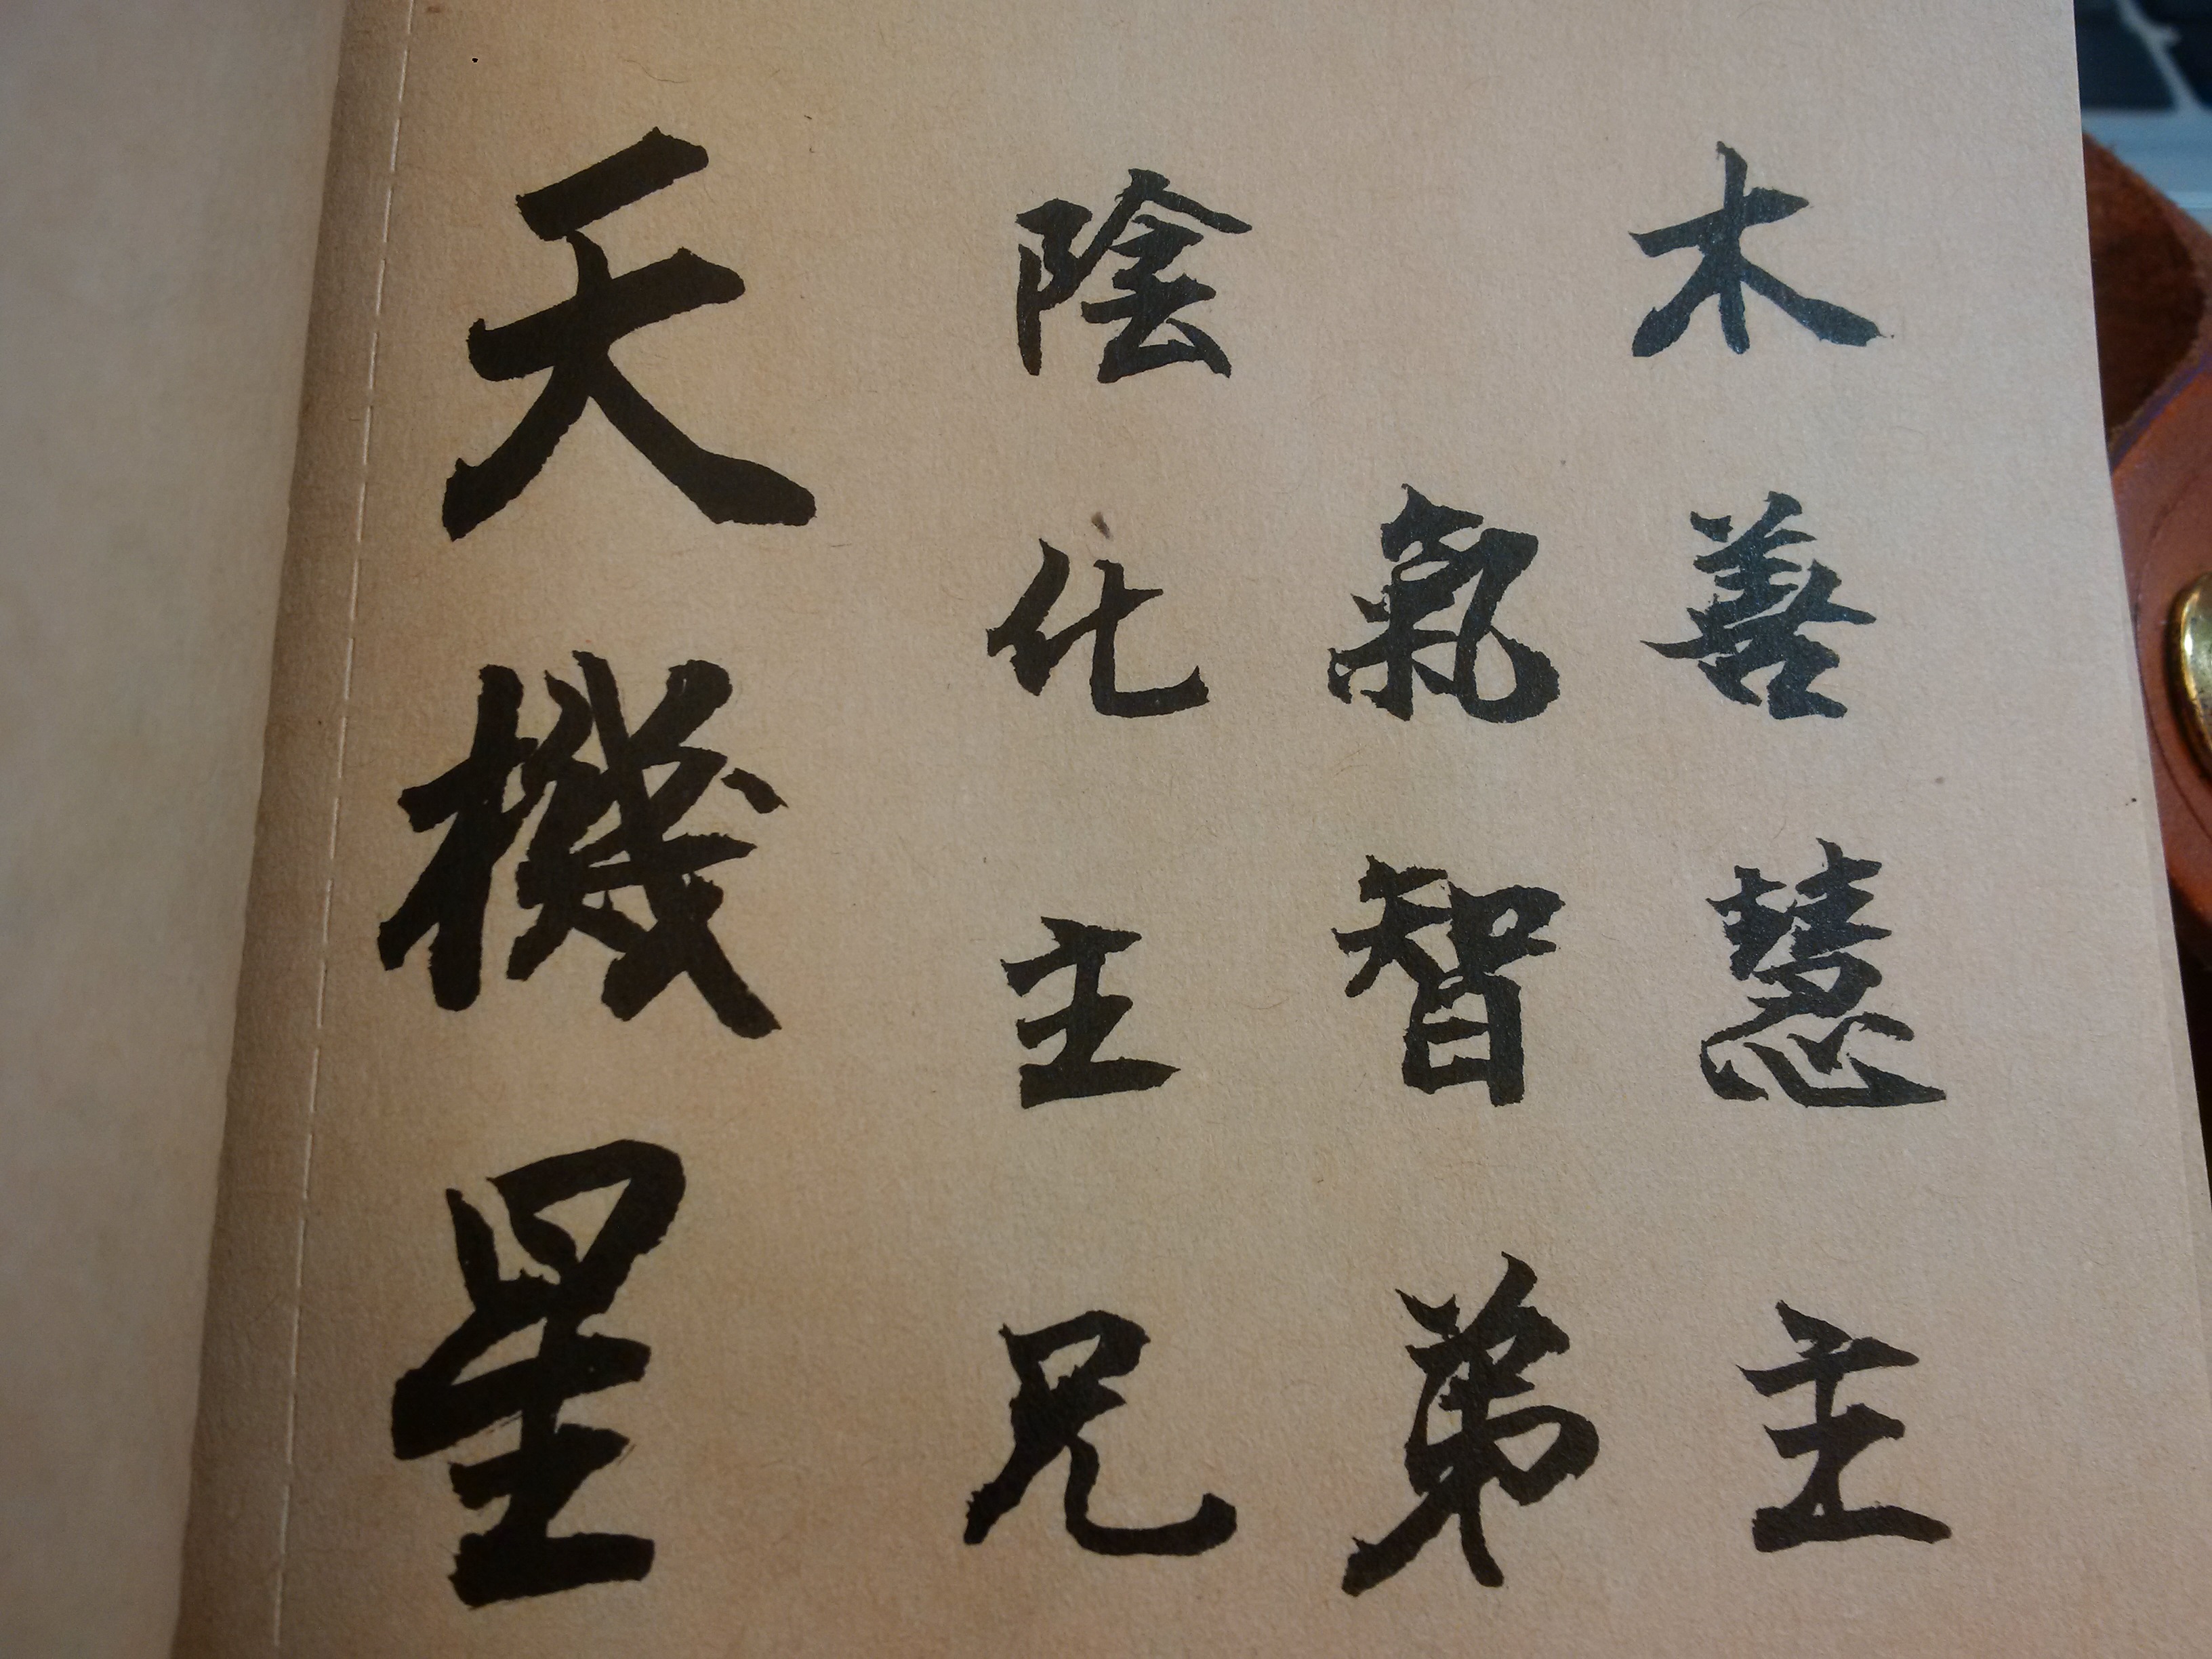 天機星
陰木
化氣善
主智慧
兄弟主